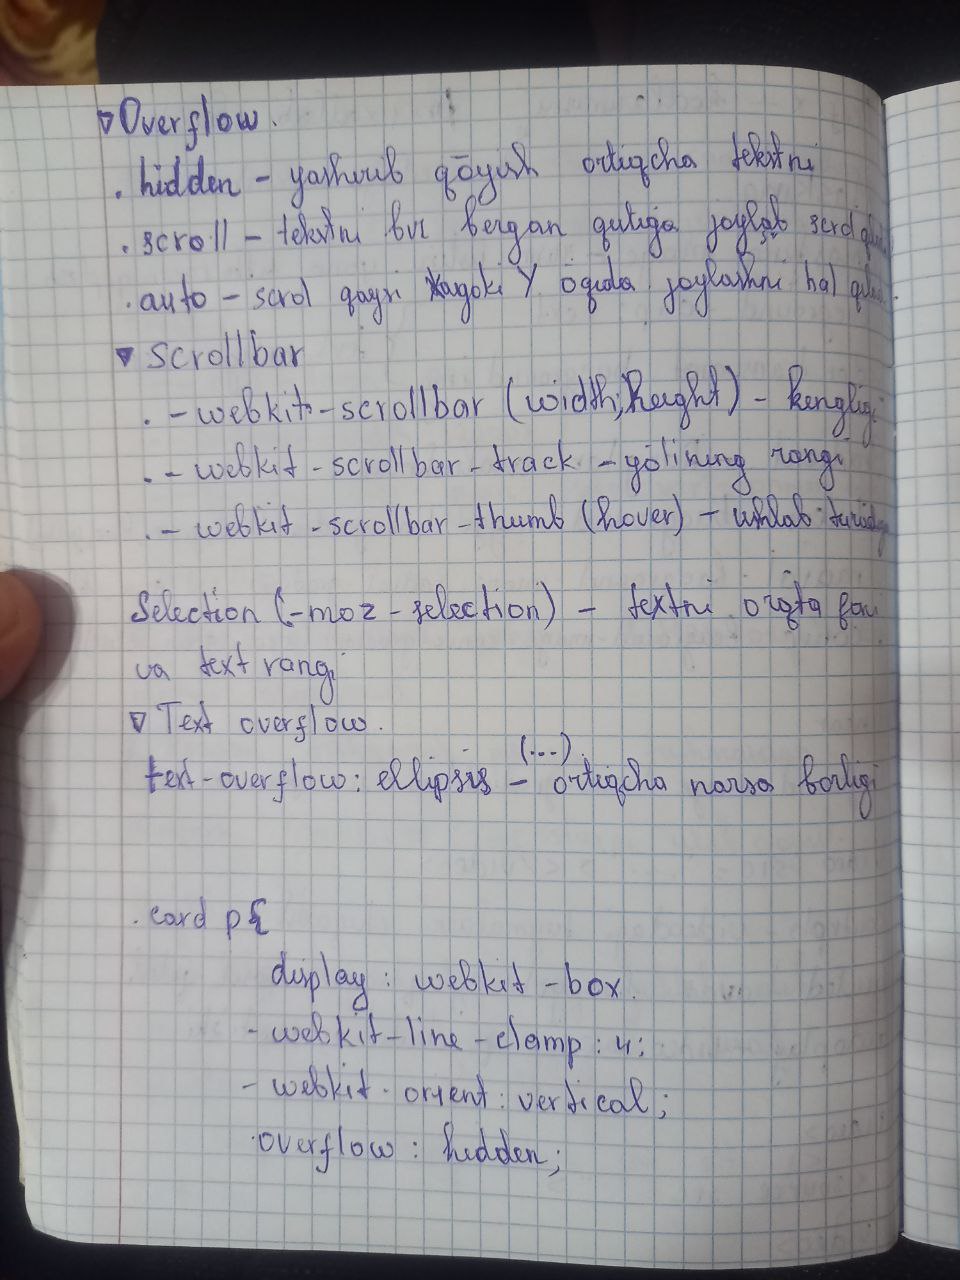 ▽ Overflow.
. hidden - yashirib qōyish ortiqcha tekstni
. scroll - tekstni biz bergan qutiga joylab scrol
. auto - scrol qaysi X yagoki Y oqida joylashni hal
▼ Scrollbar
. - webkit - scrollbar (width, height) - kengligi
. - webkit - scrollbar - track - yōlining rangi
. - webkit - scrollbar - thumb (hover) - ushlab turadi
Selection (-moz - selection) - textni orqta foni
va text rangi
▽ Text overflow.
(...)
text-overflow: ellipsis - ortiqcha narsa borligi
.card p{
display: webkit - box.
- webkit - line - clamp: 4;
- webkit - orient: vertical;
overflow: hidden;